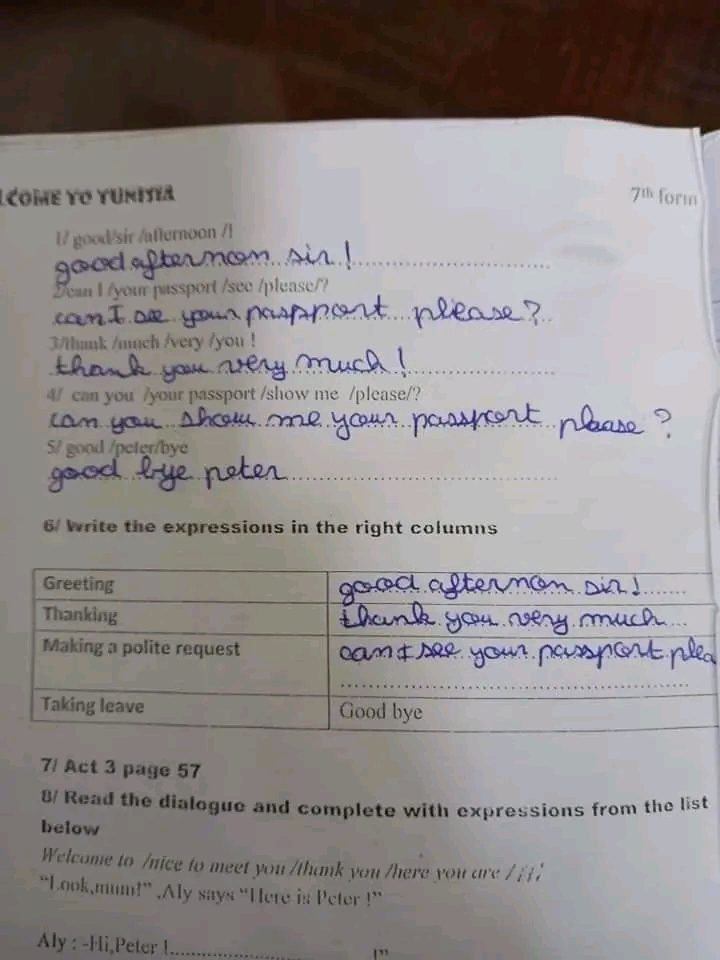 COME TO TUNISIA
7th form
1/ good/sir /afternoon /!
good afternoon sir !
2/can I /your passport /see /please/?
can I see your passport please?
3/thank /much /very /you !
thank you very much !
4/ can you /your passport /show me /please/?
can you show me your passport please ?
5/ good /peter/bye
good bye peter
6/ Write the expressions in the right columns
Greeting good afternoon sir !
Thanking thank you very much
Making a polite request can I see your passport plea
Taking leave Good bye
7/ Act 3 page 57
8/ Read the dialogue and complete with expressions from the list
below
Welcome to /nice to meet you /thank you /here you are /
“Look,mum!” ,Aly says “Here is Peter !”
Aly : -Hi,Peter !.................... !”